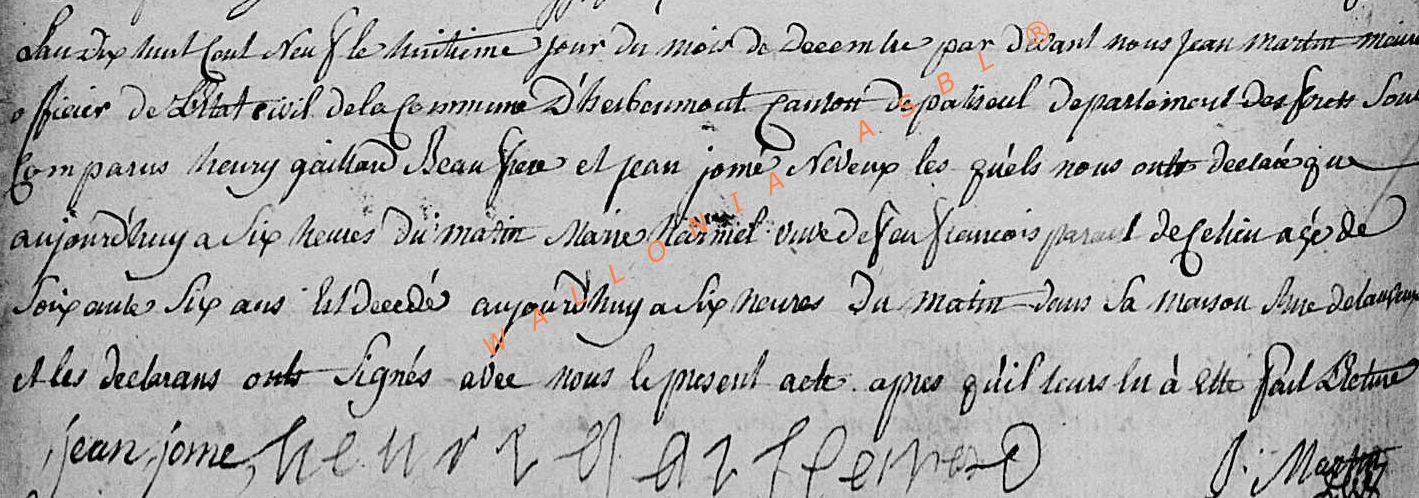 Lan dix huit Cent Neuf le huitieme jour du mois de Decembre par devant nous jean martin maire
officier de LEtat civil de la Commune D'herbeumont Canton de paliseul departement des forets Sont
Comparus henry gaillard Beau frere et jean jomé Neveux les quels nous onts declaré que
aujourd'huy a Six heures du matin Marie harmel vuve de feu francois de Ce lieu agé de
Soixante Six ans Est decedé aujourd'huy a Six heures du matin dans Sa maison Rue
et les declarans onts Signés avec nous le present acte apres qu'il leurs lu à Etté fait Lecture
jean jome henri J. Martin
WALLONIA ASBL ®